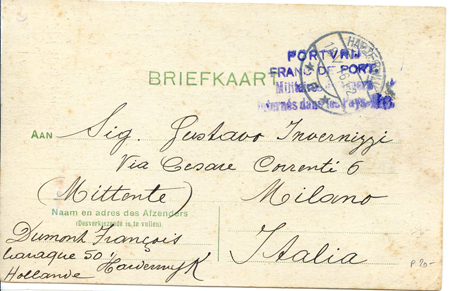 PORTVRIJ
FRANC DE PORT.
Militaires
internés dans les Pays
BRIEFKAART
HARDERWIJK
AAN
Sig. Gustavo Invernizzi
Via Cesare Correnti 6
(Mittente)
Milano
Naam en adres des Afzenders
(Desverkiezende in te vullen)
Dumont François
baraque 50
Harderwyk
Hollande
Italia
P 20-